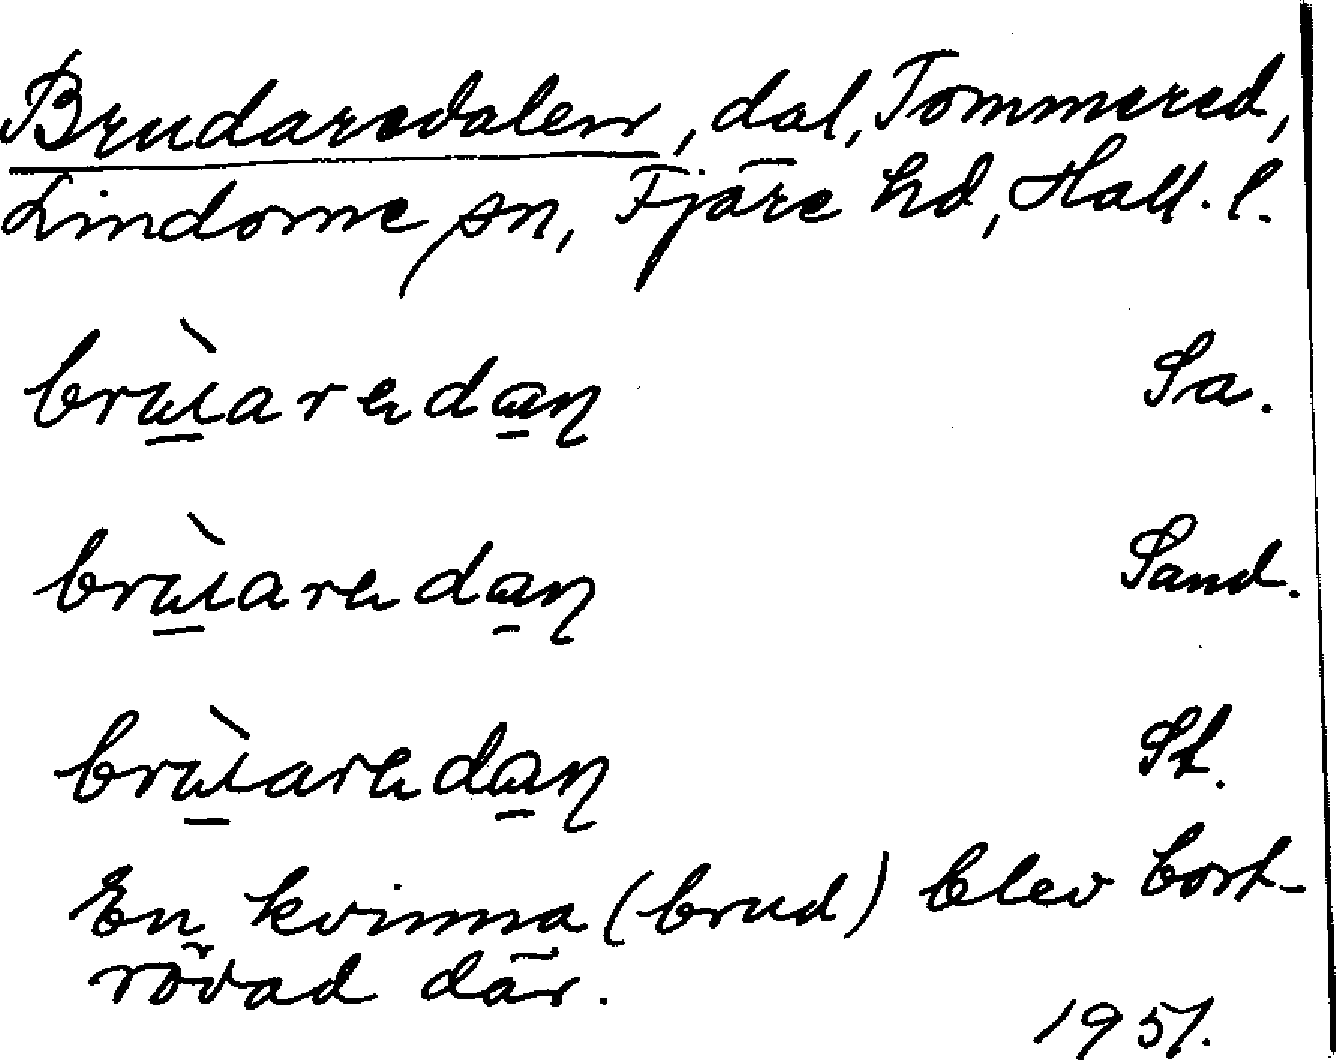 Brudaredalen, dal, Tommered,
Lindome sn, Fjäre hd, Hall. l.
Sa.
Sand.
St.
En kvinna (brud) blev bort-
rövad där.
1951.